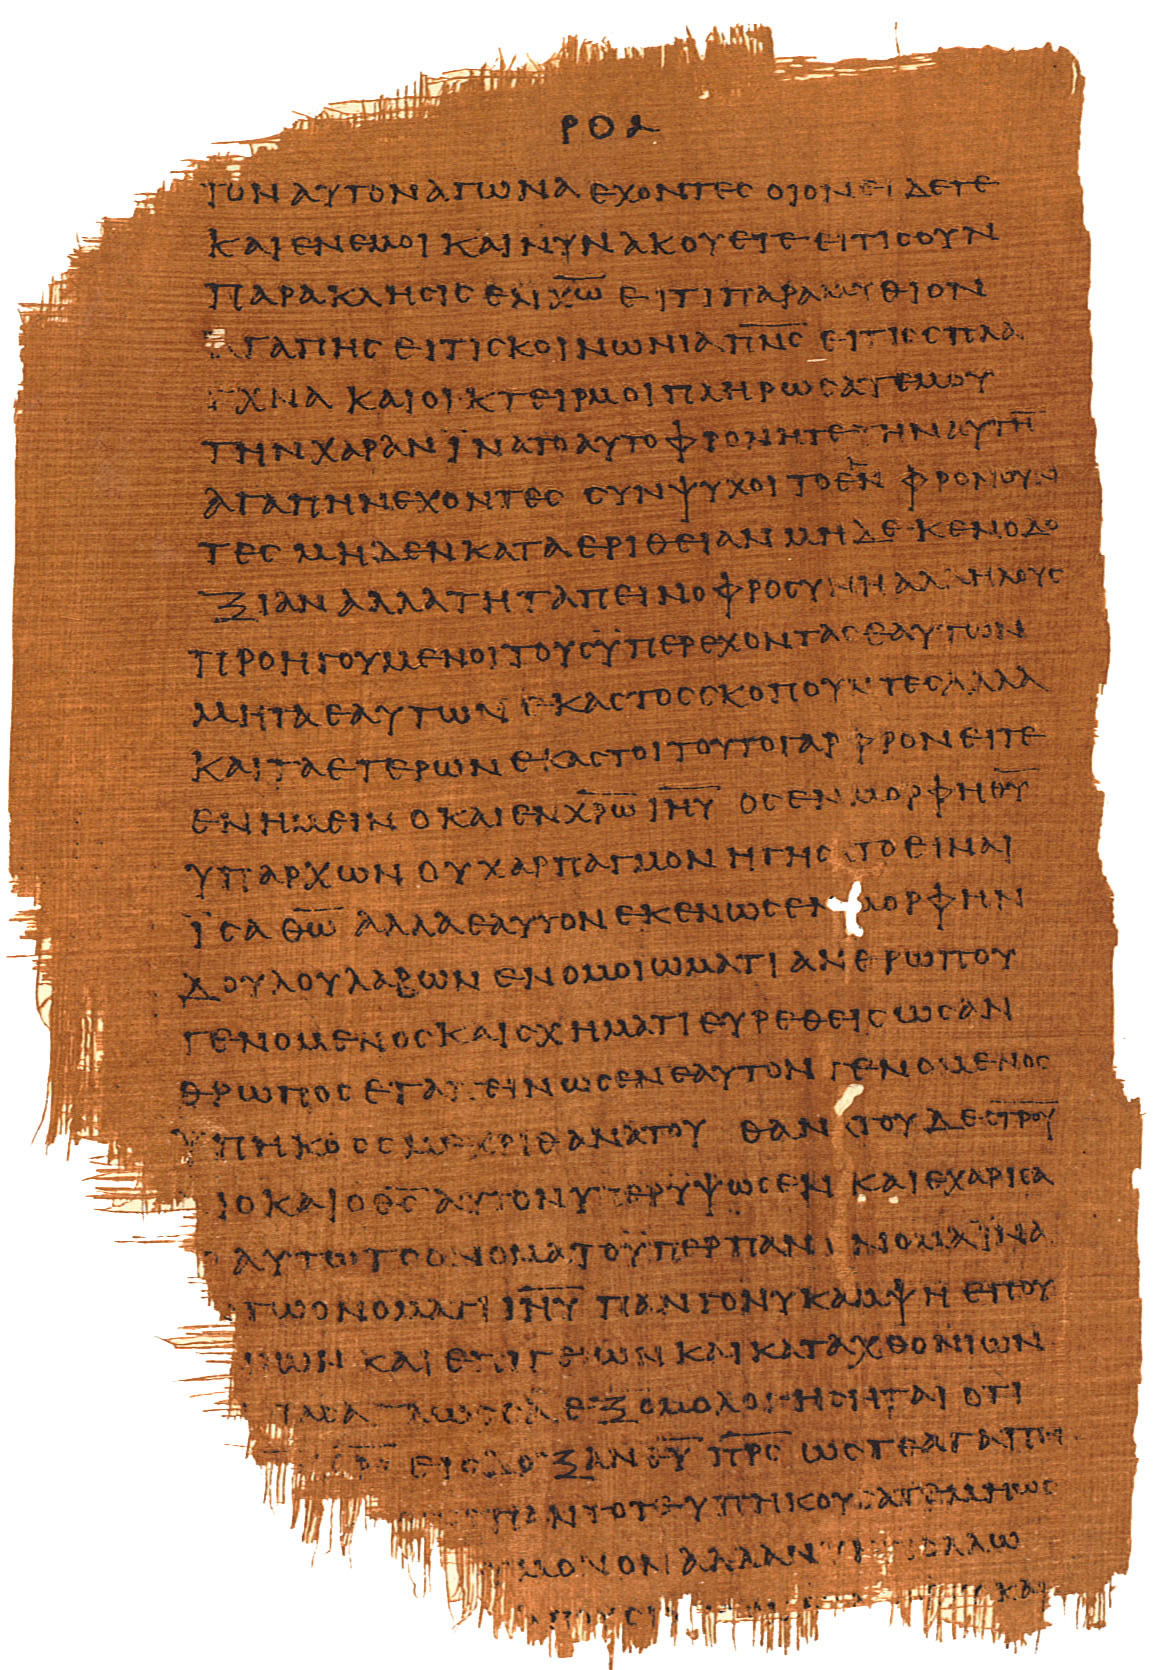 ΡΟΑ
ΤΟΝ ΑΥΤΟΝ ΑΓΩΝΑ ΕΧΟΝΤΕΣ ΟΙΟΝ ΕΙΔΕΤΕ
ΚΑΙ ΕΝ ΕΜΟΙ ΚΑΙ ΝΥΝ ΑΚΟΥΕΤΕ ΕΙ ΤΙΣ ΟΥΝ
ΠΑΡΑΚΛΗΣΙΣ ΕΝ Χ̅Ω̅ ΕΙ ΤΙ ΠΑΡΑΜΥΘΙΟΝ
ΑΓΑΠΗΣ ΕΙ ΤΙΣ ΚΟΙΝΩΝΙΑ Π̅Ν̅Σ̅ ΕΙ ΤΙΣ ΣΠΛΑ
ΓΧΝΑ ΚΑΙ ΟΙΚΤΕΙΡΜΟΙ ΠΛΗΡΩΣΑΤΕ ΜΟΥ
ΤΗΝ ΧΑΡΑΝ ΪΝΑ ΤΟ ΑΥΤΟ ΦΡΟΝΗΤΕ ΤΗΝ ΑΥΤΗ̅
ΑΓΑΠΗΝ ΕΧΟΝΤΕΣ ΣΥΝΨΥΧΟΙ ΤΟ ΕΝ ΦΡΟΝΟΥΝ
ΤΕΣ ΜΗΔΕΝ ΚΑΤΑ ΕΡΙΘΕΙΑΝ ΜΗΔΕ ΚΕΝΟΔΟ
ΞΙΑΝ ΑΛΛΑ ΤΗ ΤΑΠΕΙΝΟΦΡΟΣΥΝΗ ΑΛΛΗΛΟΥΣ
ΠΡΟΗΓΟΥΜΕΝΟΙ ΤΟΥΣ ΫΠΕΡΕΧΟΝΤΑΣ ΕΑΥΤΩΝ
ΜΗ ΤΑ ΕΑΥΤΩΝ ΕΚΑΣΤΟΣ ΣΚΟΠΟΥΝΤΕΣ ΑΛΛΑ
ΚΑΙ ΤΑ ΕΤΕΡΩΝ ΕΚΑΣΤΟΙ ΤΟΥΤΟ ΓΑΡ ΦΡΟΝΕΙΤΕ
ΕΝ ΗΜΕΙΝ Ο ΚΑΙ ΕΝ Χ̅Ρ̅Ω̅ Ι̅Η̅Υ̅ ΟΣ ΕΝ ΜΟΡΦΗ Θ̅Υ̅
ΥΠΑΡΧΩΝ ΟΥΧ ΑΡΠΑΓΜΟΝ ΗΓΗΣΑΤΟ ΕΙΝΑΙ
ΪΣΑ Θ̅Ω̅ ΑΛΛΑ ΕΑΥΤΟΝ ΕΚΕΝΩΣΕΝ ΜΟΡΦΗΝ
ΔΟΥΛΟΥ ΛΑΒΩΝ ΕΝ ΟΜΟΙΩΜΑΤΙ ΑΝΘΡΩΠΟΥ
ΓΕΝΟΜΕΝΟΣ ΚΑΙ ΣΧΗΜΑΤΙ ΕΥΡΕΘΕΙΣ ΩΣ ΑΝ
ΘΡΩΠΟΣ ΕΤΑΠΕΙΝΩΣΕΝ ΕΑΥΤΟΝ ΓΕΝΟΜΕΝΟΣ
ΥΠΗΚΟΟΣ ΜΕΧΡΙ ΘΑΝΑΤΟΥ ΘΑΝΑΤΟΥ ΔΕ Σ̅Τ̅Ρ̅ΟΥ
ΙΟ ΚΑΙ Ο Θ̅Σ̅ ΑΥΤΟΝ ΥΠΕΡΥΨΩΣΕΝ ΚΑΙ ΕΧΑΡΙΣΑ
ΑΥΤΩ ΤΟ ΟΝΟΜΑ ΤΟ ΫΠΕΡ ΠΑΝ ΟΝΟΜΑ ΪΝΑ
ΤΩ ΟΝΟΜΑΤΙ Ι̅Η̅Υ̅ ΠΑΝ ΓΟΝΥ ΚΑΜΨΗ ΕΠΟΥ
ΝΙΩΝ ΚΑΙ ΕΠΙΓΕΙΩΝ ΚΑΙ ΚΑΤΑΧΘΟΝΙΩΝ
ΓΛΩΣΣΑ ΕΞΟΜΟΛΟΓΗΣΗΤΑΙ ΟΤΙ
ΕΙΣ ΔΟΞΑΝ Θ̅Υ̅ Π̅Ρ̅Σ̅ ΩΣΤΕ ΑΓΑΠΗ
ΠΑΝΤΟΤΕ ΥΠΗΚΟΥΣΑΤΕ ΜΗ ΩΣ
ΜΟΝΟΝ ΑΛΛΑ ΝΥΝ ΠΟΛΛΩ
ΚΑΙ